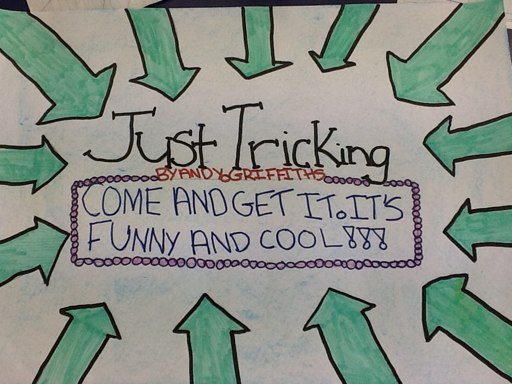 Just Tricking
BY ANDY GRIFFITHS
COME AND GET IT. IT'S
FUNNY AND COOL!!!